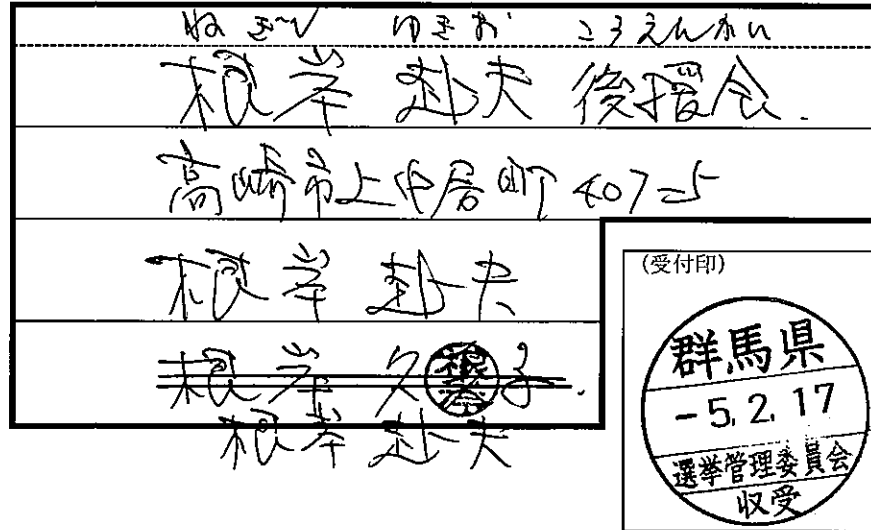 ねぎし ゆきお こうえんかい
根岸 赴夫 後援会
高崎市上中居町407-5
根岸 赴夫
根岸 久 子
根岸 赴夫
(受付印)
群馬県
-5.2.17
選挙管理委員会
収受